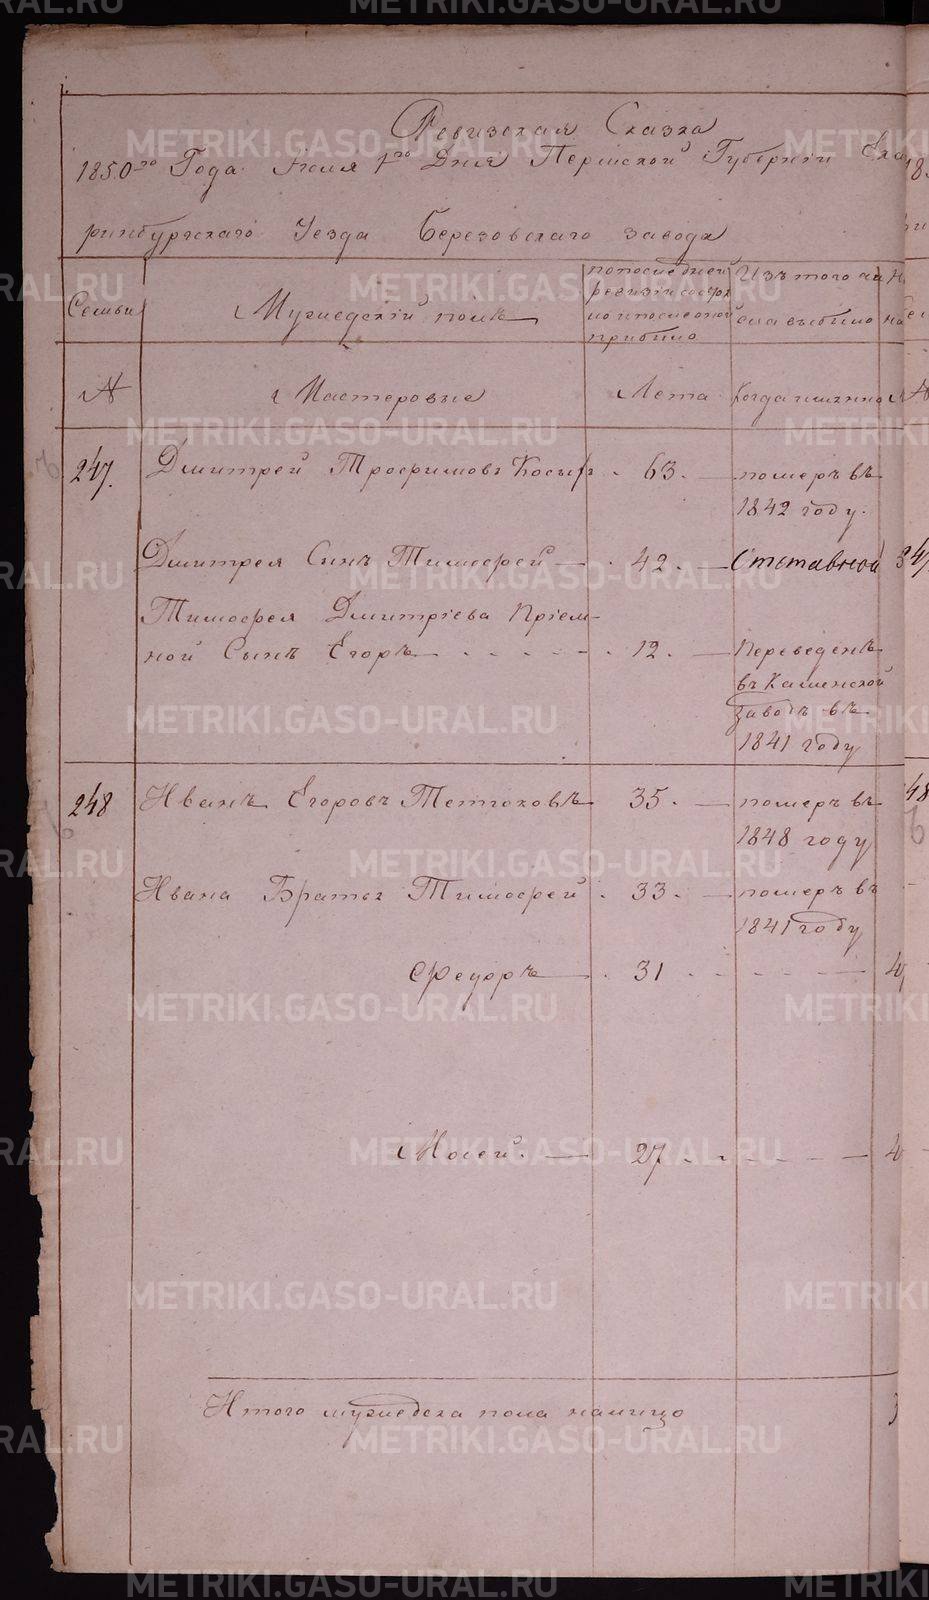 Ревизская Сказка
1850го Года Июля 1го Дня Пермской Губернии Ека
ринбургскаго Уезда Березовскаго завода
Семьи
Мужедский полъ
по последней
ревизии состоя
ло и после оной
прибыло
Изъ того чи
сла выбыло
№
Мастеровые
Лета
Когда именно
247.
Дмитрей Трофимовъ Косых
63.
померъ въ
1842 году.
Дмитрея Сынъ Тимофей
42.
Отставной
Тимофея Дмитріева Пріем-
ной Сынъ Егоръ
12.
Переведенъ
въ Каменской
заводъ въ
1841 году
248
Иванъ Егоровъ Тетюковъ
35.
померъ въ
1848 году
Ивана Братья Тимофей
33.
померъ въ
1841 году
Федоръ
31
Мосей.
27
Итого мужедска пола налицо
METRIKI.GASO-URAL.RU